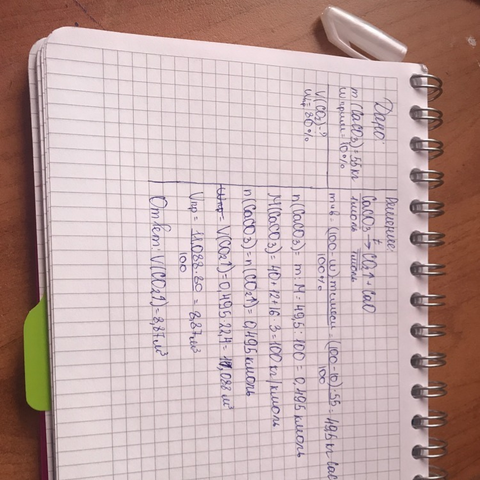 Дано:
m(CaCO3)=55 кг
wприм=10%
V(CO2)-?
wпр=80%
Решение:
CaCO3 →t CO2↑ + CaO
1моль 1моль
mч.в. = (100-w)·mсмеси / 100% = (100-10)·55 / 100 = 49,5 кг CaC
n(CaCO3) = m:M = 49,5:100 = 0,495 кмоль
M(CaCO3) = 40+12+16·3=100 кг/кмоль
n(CaCO3) = n(CO2↑) = 0,495 кмоль
V(CO2↑)=0,495·22,4= 11,088 м³
Vпр = 11,088·80 / 100 = 8,87 м³
Ответ: V(CO2↑) = 8,87 м³